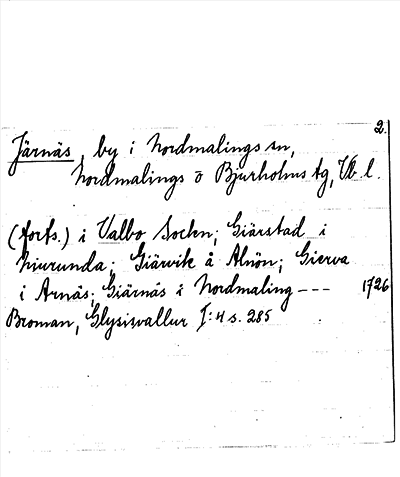 2.
Järnäs, by i Nordmalings sn,
Nordmalings o Bjurholms tg, Vb. l.
(forts.) i Valbo Socken; Giärstad i
Niurunda; Giärvik å Alnön; Gierva
i Arnäs; Giärnäs i Nordmaling --- 1726
Broman, Glysisvallur I:4 s. 285